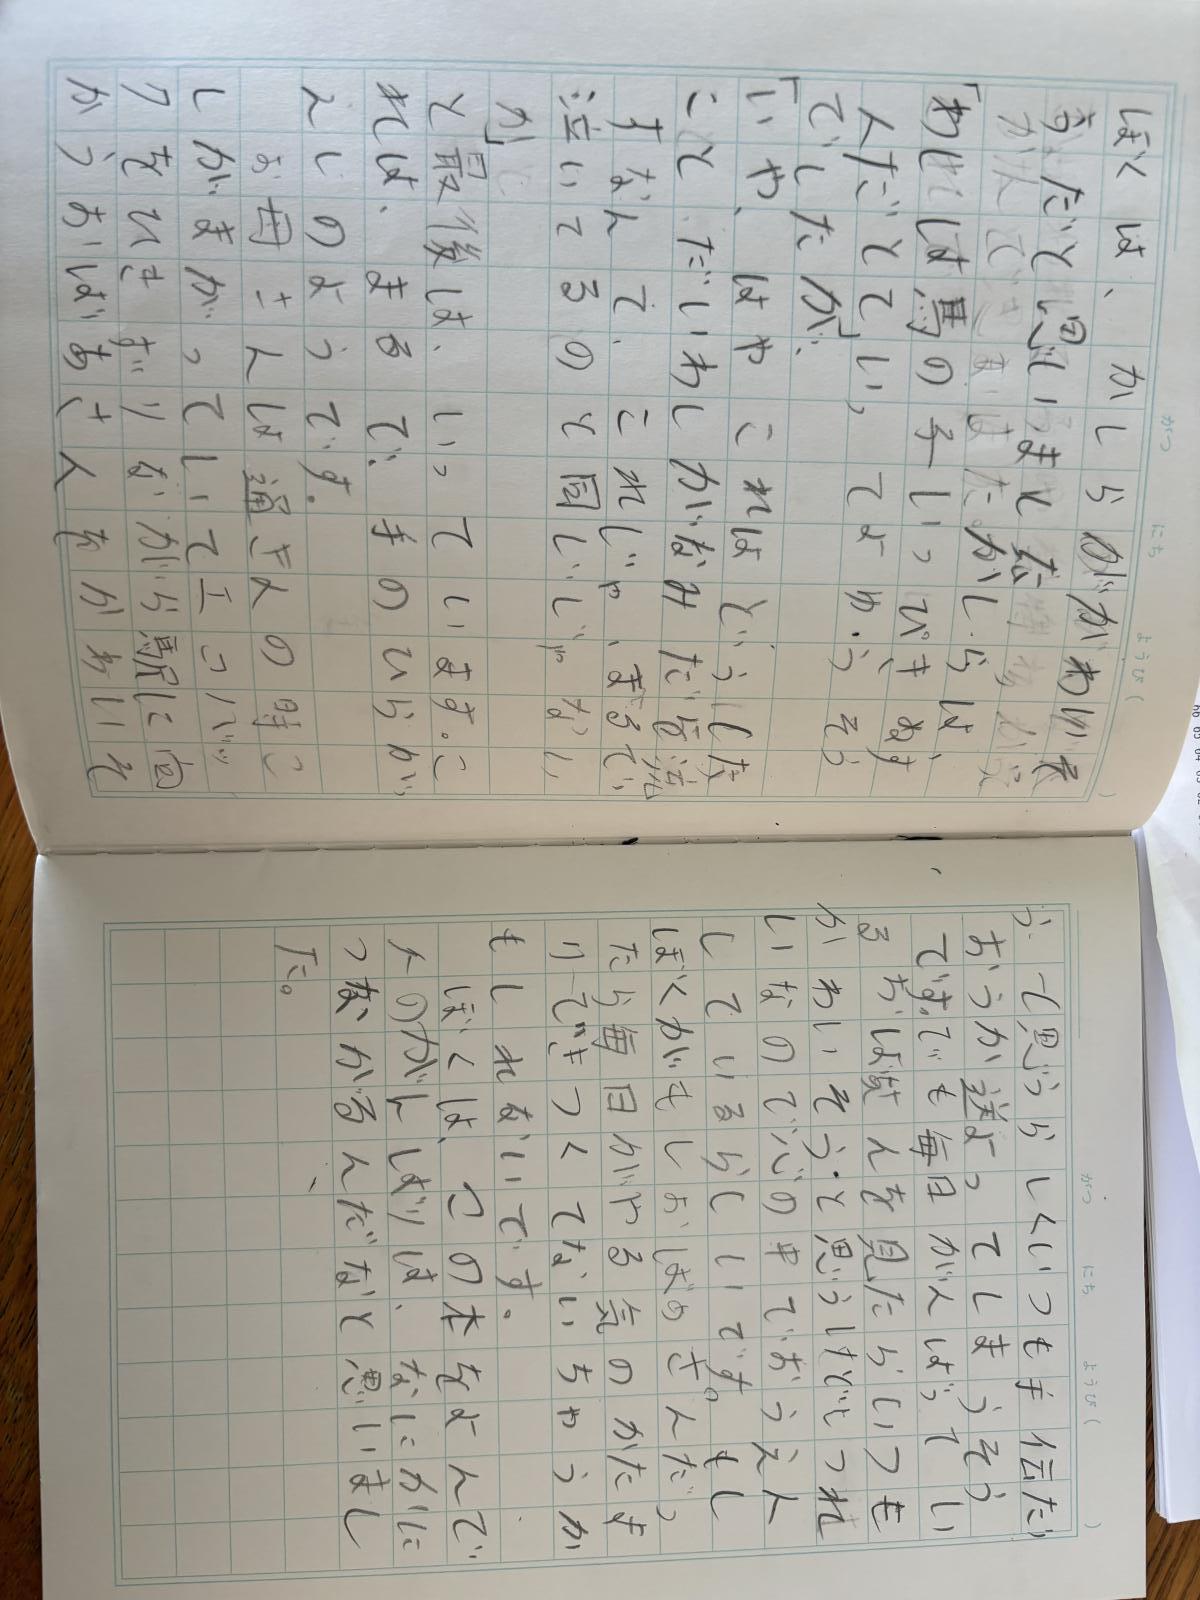 ぼくは、かしらがかわいそ
うだと思いました
かしらは、
「わしは馬の子いっぴきぬす
人だとてい、てよかろうそう
でしたが」
「いや、はやこれはどうした
ことだ、わしがなみだを流
すなんて、これじゃ、まるで、
泣いてるのと同じじゃない
か」
と最後は、いっています。こ
れは、まるで、きのいらが
んしのようです。
お母さんは通きんの時こ
しがまがっていて立つバッ
クをひきずりながら駅に向
かうおばあさんをかわいそ
う。て思うらしくいつもき伝だ
おうか迷よってしまうそう
です。でも毎日がんばってい
るおばさんを見たらいつも
かわいそう。と思うけどつれ
いなので心の中でおうえん
しているらしいです。もし
ぼくがもしおばあさんだっ
たら毎日がやる気のかたま
りできつくてないちゃうか
もしれないです。
ぼくは、この本をよんで
人のがんばりは、なにかに
つながるんだなと思いまし
た。